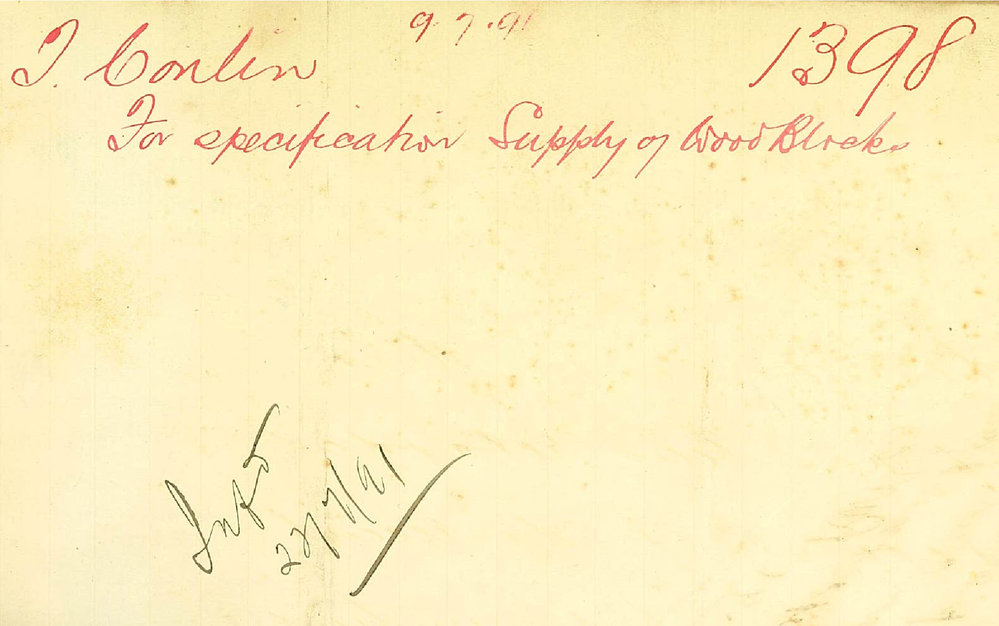 9.7.91
J. Conlin 1398
For specification Supply of Wood Blocks
Infd
22/7/91